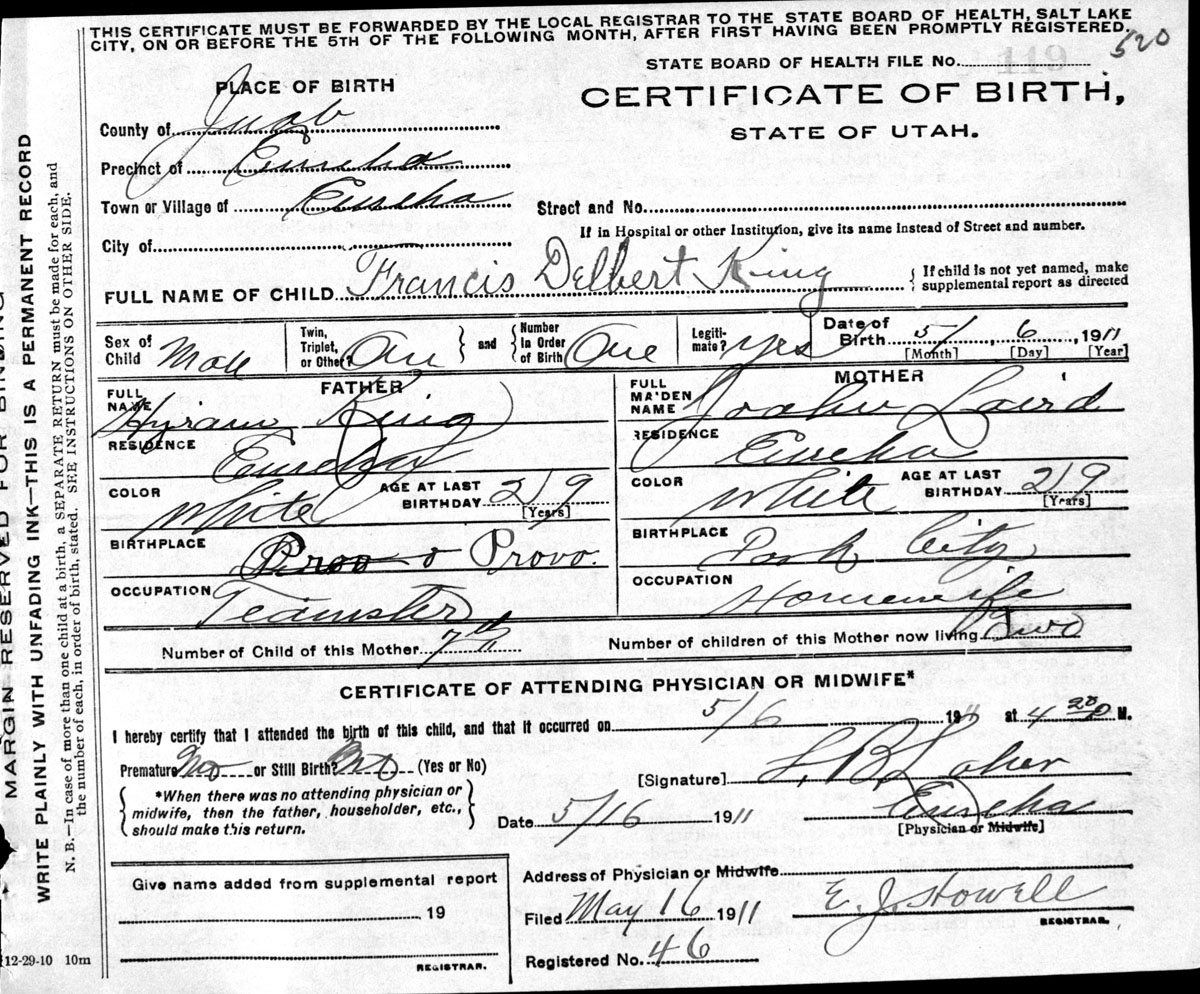 THIS CERTIFICATE MUST BE FORWARDED BY THE LOCAL REGISTRAR TO THE STATE BOARD OF HEALTH, SALT LAKE
CITY, ON OR BEFORE THE 5TH OF THE FOLLOWING MONTH, AFTER FIRST HAVING BEEN PROMPTLY REGISTERED.
520
STATE BOARD OF HEALTH FILE No. 119
PLACE OF BIRTH
CERTIFICATE OF BIRTH,
STATE OF UTAH.
County of Juab
Precinct of Eureka
Town or Village of Eureka
Street and No.
If in Hospital or other Institution, give its name instead of Street and number.
City of
FULL NAME OF CHILD Francis Delbert King
If child is not yet named, make
supplemental report as directed
Sex of Child Male
Twin, Triplet, or Other?
and
Number in Order of Birth One
Legiti-mate? Yes
Date of Birth 5/ 6, 1911
[Month] [Day] [Year]
FATHER
FULL NAME Hyram King
RESIDENCE Eureka
COLOR White
AGE AT LAST BIRTHDAY 29
[Years]
BIRTHPLACE Provo Provo.
OCCUPATION Teamster
MOTHER
FULL MAIDEN NAME Laird
RESIDENCE Eureka
COLOR White
AGE AT LAST BIRTHDAY 29
[Years]
BIRTHPLACE Park City
OCCUPATION Housewife
Number of Child of this Mother 7th
Number of children of this Mother now living Two
CERTIFICATE OF ATTENDING PHYSICIAN OR MIDWIFE*
I hereby certify that I attended the birth of this child, and that it occurred on 5/6 1911 at 4 P M.
Premature No or Still Birth? No (Yes or No)
[Signature]
*When there was no attending physician or
midwife, then the father, householder, etc.,
should make this return.
Date 5/16 1911
Eureka
[Physician or Midwife]
Give name added from supplemental report
19
REGISTRAR.
Address of Physician or Midwife
Filed May 16 1911
E. J. Howell
REGISTRAR.
Registered No. 46
12-29-10 10m
MARGIN RESERVED FOR BINDING
WRITE PLAINLY WITH UNFADING INK—THIS IS A PERMANENT RECORD
N. B.—In case of more than one child at a birth, a SEPARATE RETURN must be made for each, and
the number of each, in order of birth, stated. SEE INSTRUCTIONS ON OTHER SIDE.